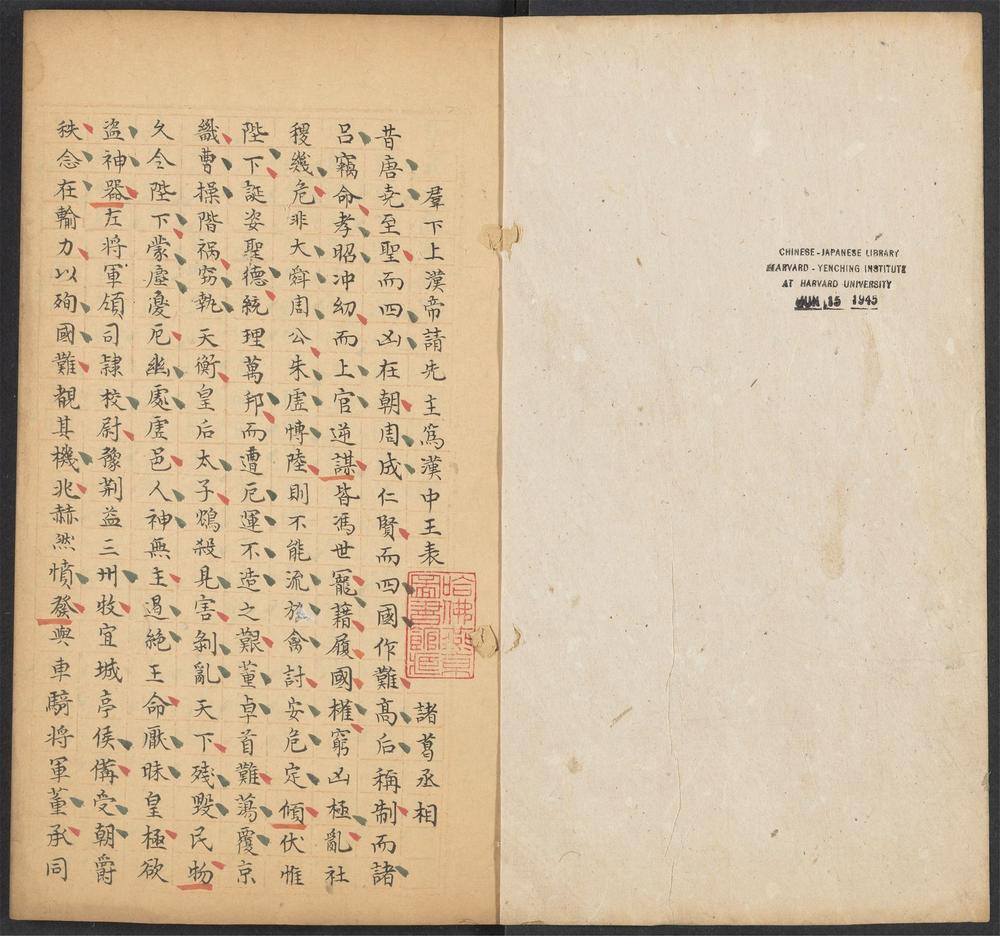 羣下上漢帝請先主爲漢中王表 諸葛丞相
昔唐堯至聖而四凶在朝周成仁賢而四國作難高后稱制而諸
呂竊命孝昭冲幼而上官逆謀皆馮世寵藉履國權窮凶極亂社
稷幾危非大舜周公朱虛博陸則不能流放禽討安危定傾伏惟
陛下誕姿聖德統理萬邦而遭厄運不造之艱董卓首難蕩覆京
畿曹操階禍窃執天衡皇后太子鴆殺見害剝亂天下殘毀民物
久令陛下蒙塵憂厄幽處虛邑人神無主遏絕王命厭昧皇極欲
盜神器左将軍領司隸校尉豫荆益三州牧宜城亭侯備受朝爵
秩念在輸力以殉國難覩其機兆赫然憤發與車騎将軍董承同
哈佛燕京
圖書館藏
CHINESE-JAPANESE LIBRARY
HARVARD-YENCHING INSTITUTE
AT HARVARD UNIVERSITY
JUN 15 1945